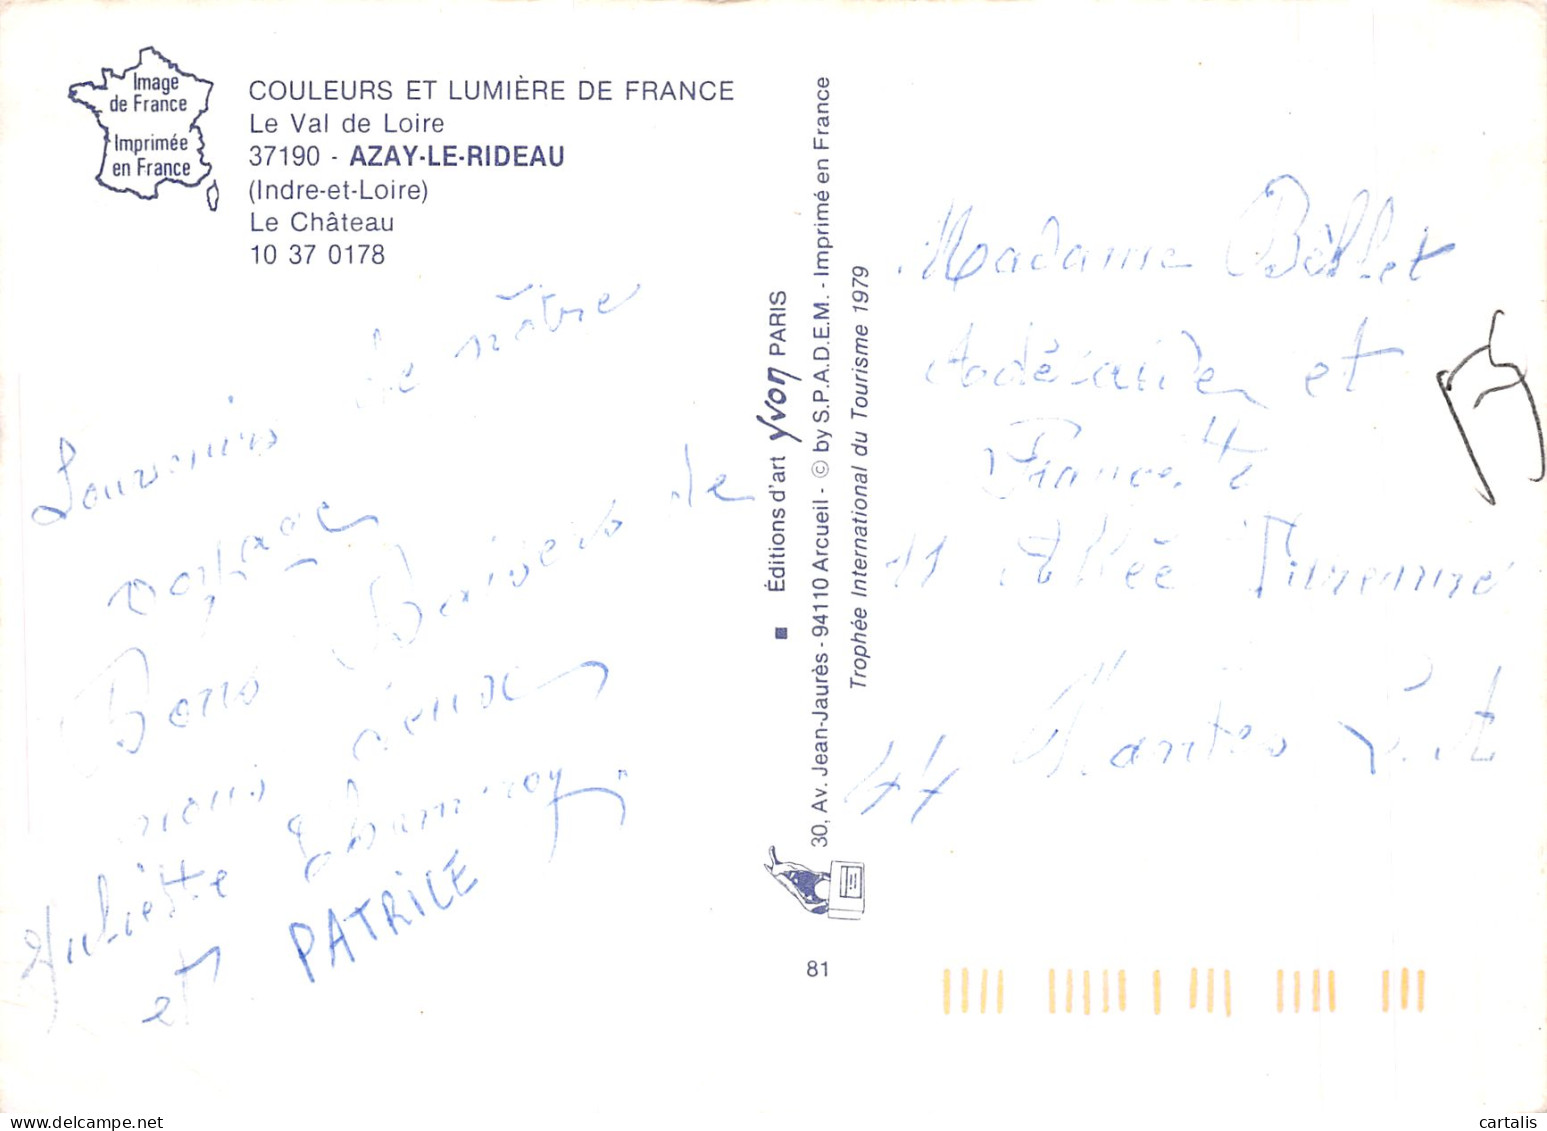 Image
de France
Imprimée
en France
COULEURS ET LUMIÈRE DE FRANCE
Le Val de Loire
37190 - AZAY-LE-RIDEAU
(Indre-et-Loire)
Le Château
10 37 0178
Souvenirs de nôtre
voyage
Bons Baisers de
nous deux
Juliette
et PATRICE
■ Éditions d'art yvon PARIS
30, Av. Jean-Jaurès - 94110 Arcueil - © by S.P.A.D.E.M. - Imprimé en France
Trophée International du Tourisme 1979
81
Madame Bellet
et
France
11 Allée Turenne
44 Nantes
cartalis